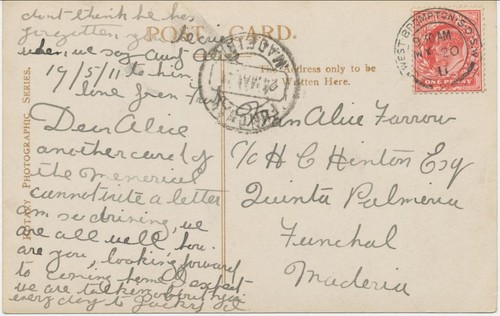 dont think he has
forgotten you he
when we say aunt
19/5/11 to him
love from
POST CARD.
The Address only to be
Written Here.
ROTARY PHOTOGRAPHIC SERIES.
WEST BROMPTON. S.O. S.W.
AM
MY 20
11
ONE PENNY
FUNCHAL
Dear Alice
another card of
the Memorial
cannot write a letter
am so driving, we
are all well how
are you, looking forward
to coming home I expect
we are talking about you
every day to Jacky
Alice Farrow
C/o H C Hinton Esq
Quinta Palmeria
Funchal
Maderia